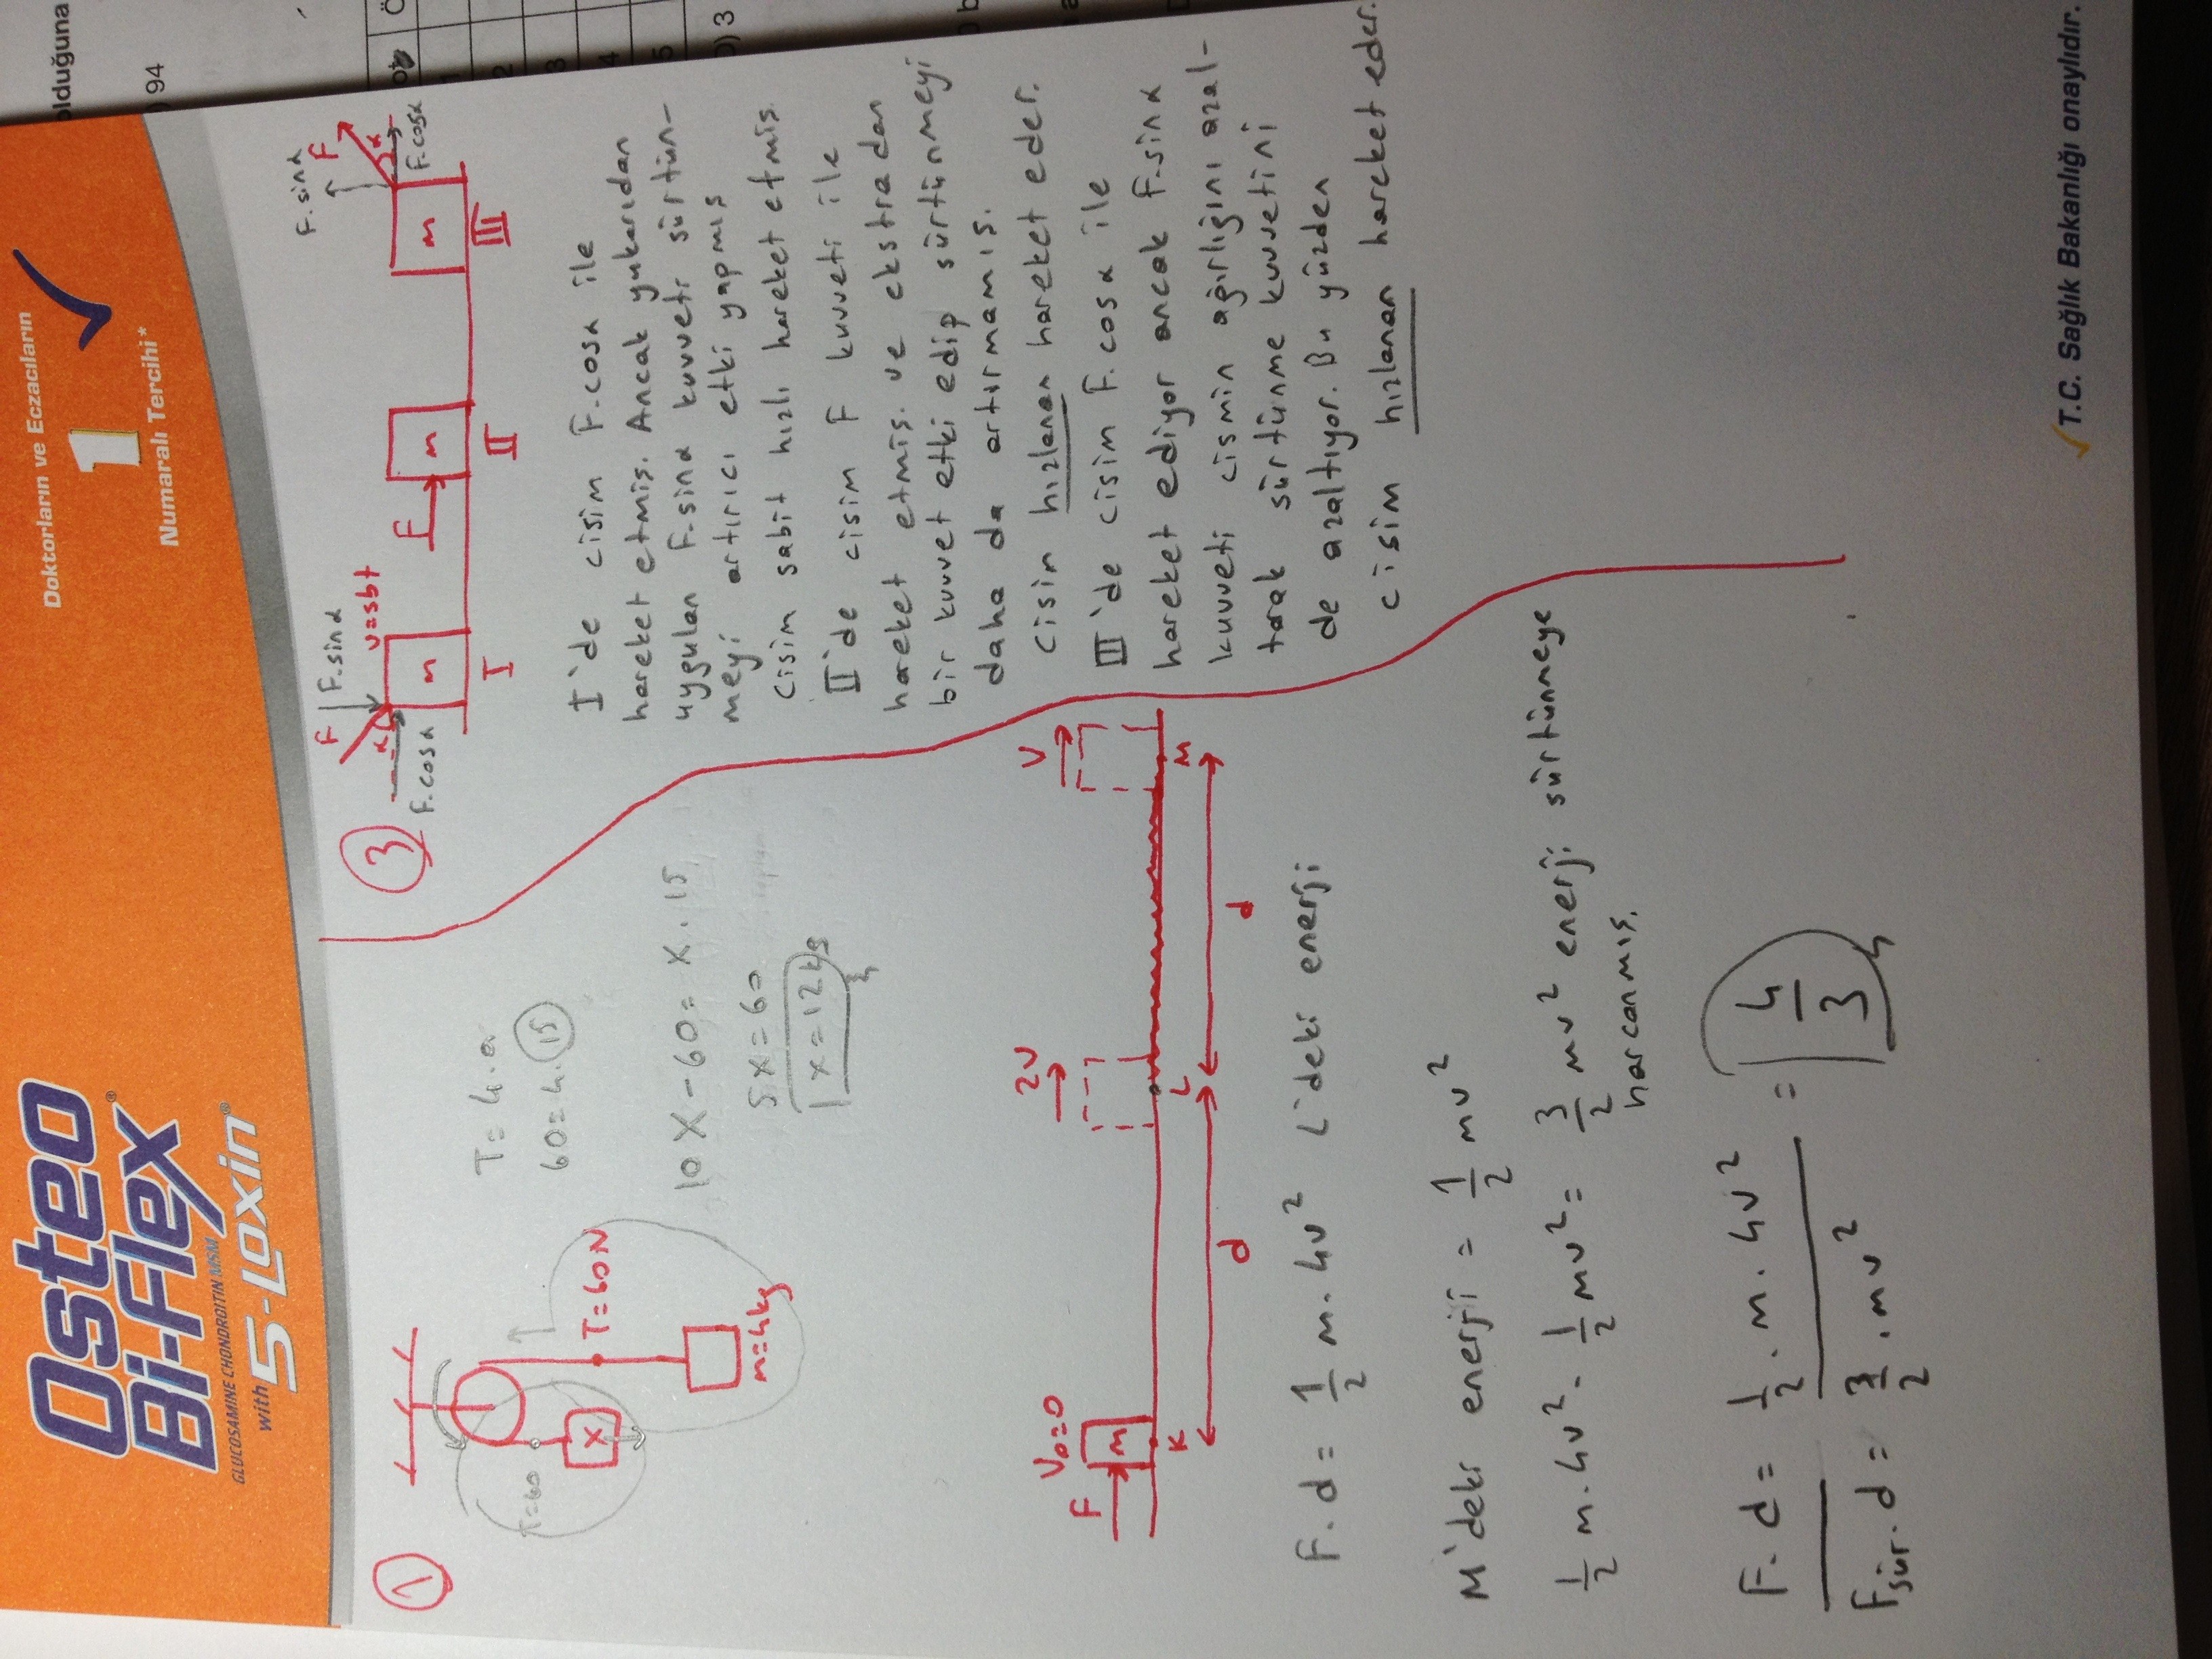 Osteo
Bi-Flex®
GLUCOSAMINE CHONDROITIN MSM
with 5-LOXIN®
Doktorların ve Eczacıların
1
Numaralı Tercihi*
olduğuna
94
2
3
4
5
3
1
T=60
X
T=60N
m=4kg
T=4.a
60=4.15
10X-60=X.15
5X=60
x=12kg
F
V₀=0
M
K
2V
L
V
M
d
d
F.d = 1/2 m.4v² L'deki enerji
M'deki enerji = 1/2 mv²
1/2 m.4v² - 1/2 mv² = 3/2 mv² enerji sürtünmeye
harcanmış.
F.d = 1/2 . m . 4v²
Fsür.d = 3/2 . mv²
= 4/3
3
F
F.sinα
α
F.cosα
v=sbt
m
I
F
m
II
F.sinα
F
α
F.cosα
m
III
I'de cisim F.cosα ile
hareket etmiş. Ancak yukarıdan
uygulan F.sinα kuvveti sürtün-
meyi artırıcı etki yapmış
cisim sabit hızlı hareket etmiş.
II'de cisim F kuvveti ile
hareket etmiş. ve ekstradan
bir kuvvet etki edip sürtünmeyi
daha da artırmamış.
cisin hızlanan hareket eder.
III'de cisim F.cosα ile
hareket ediyor ancak F.sinα
kuvveti cismin ağırlığını azal-
tarak sürtünme kuvvetini
de azaltıyor. Bu yüzden
cisim hızlanan hareket eder.
T.C. Sağlık Bakanlığı onaylıdır.